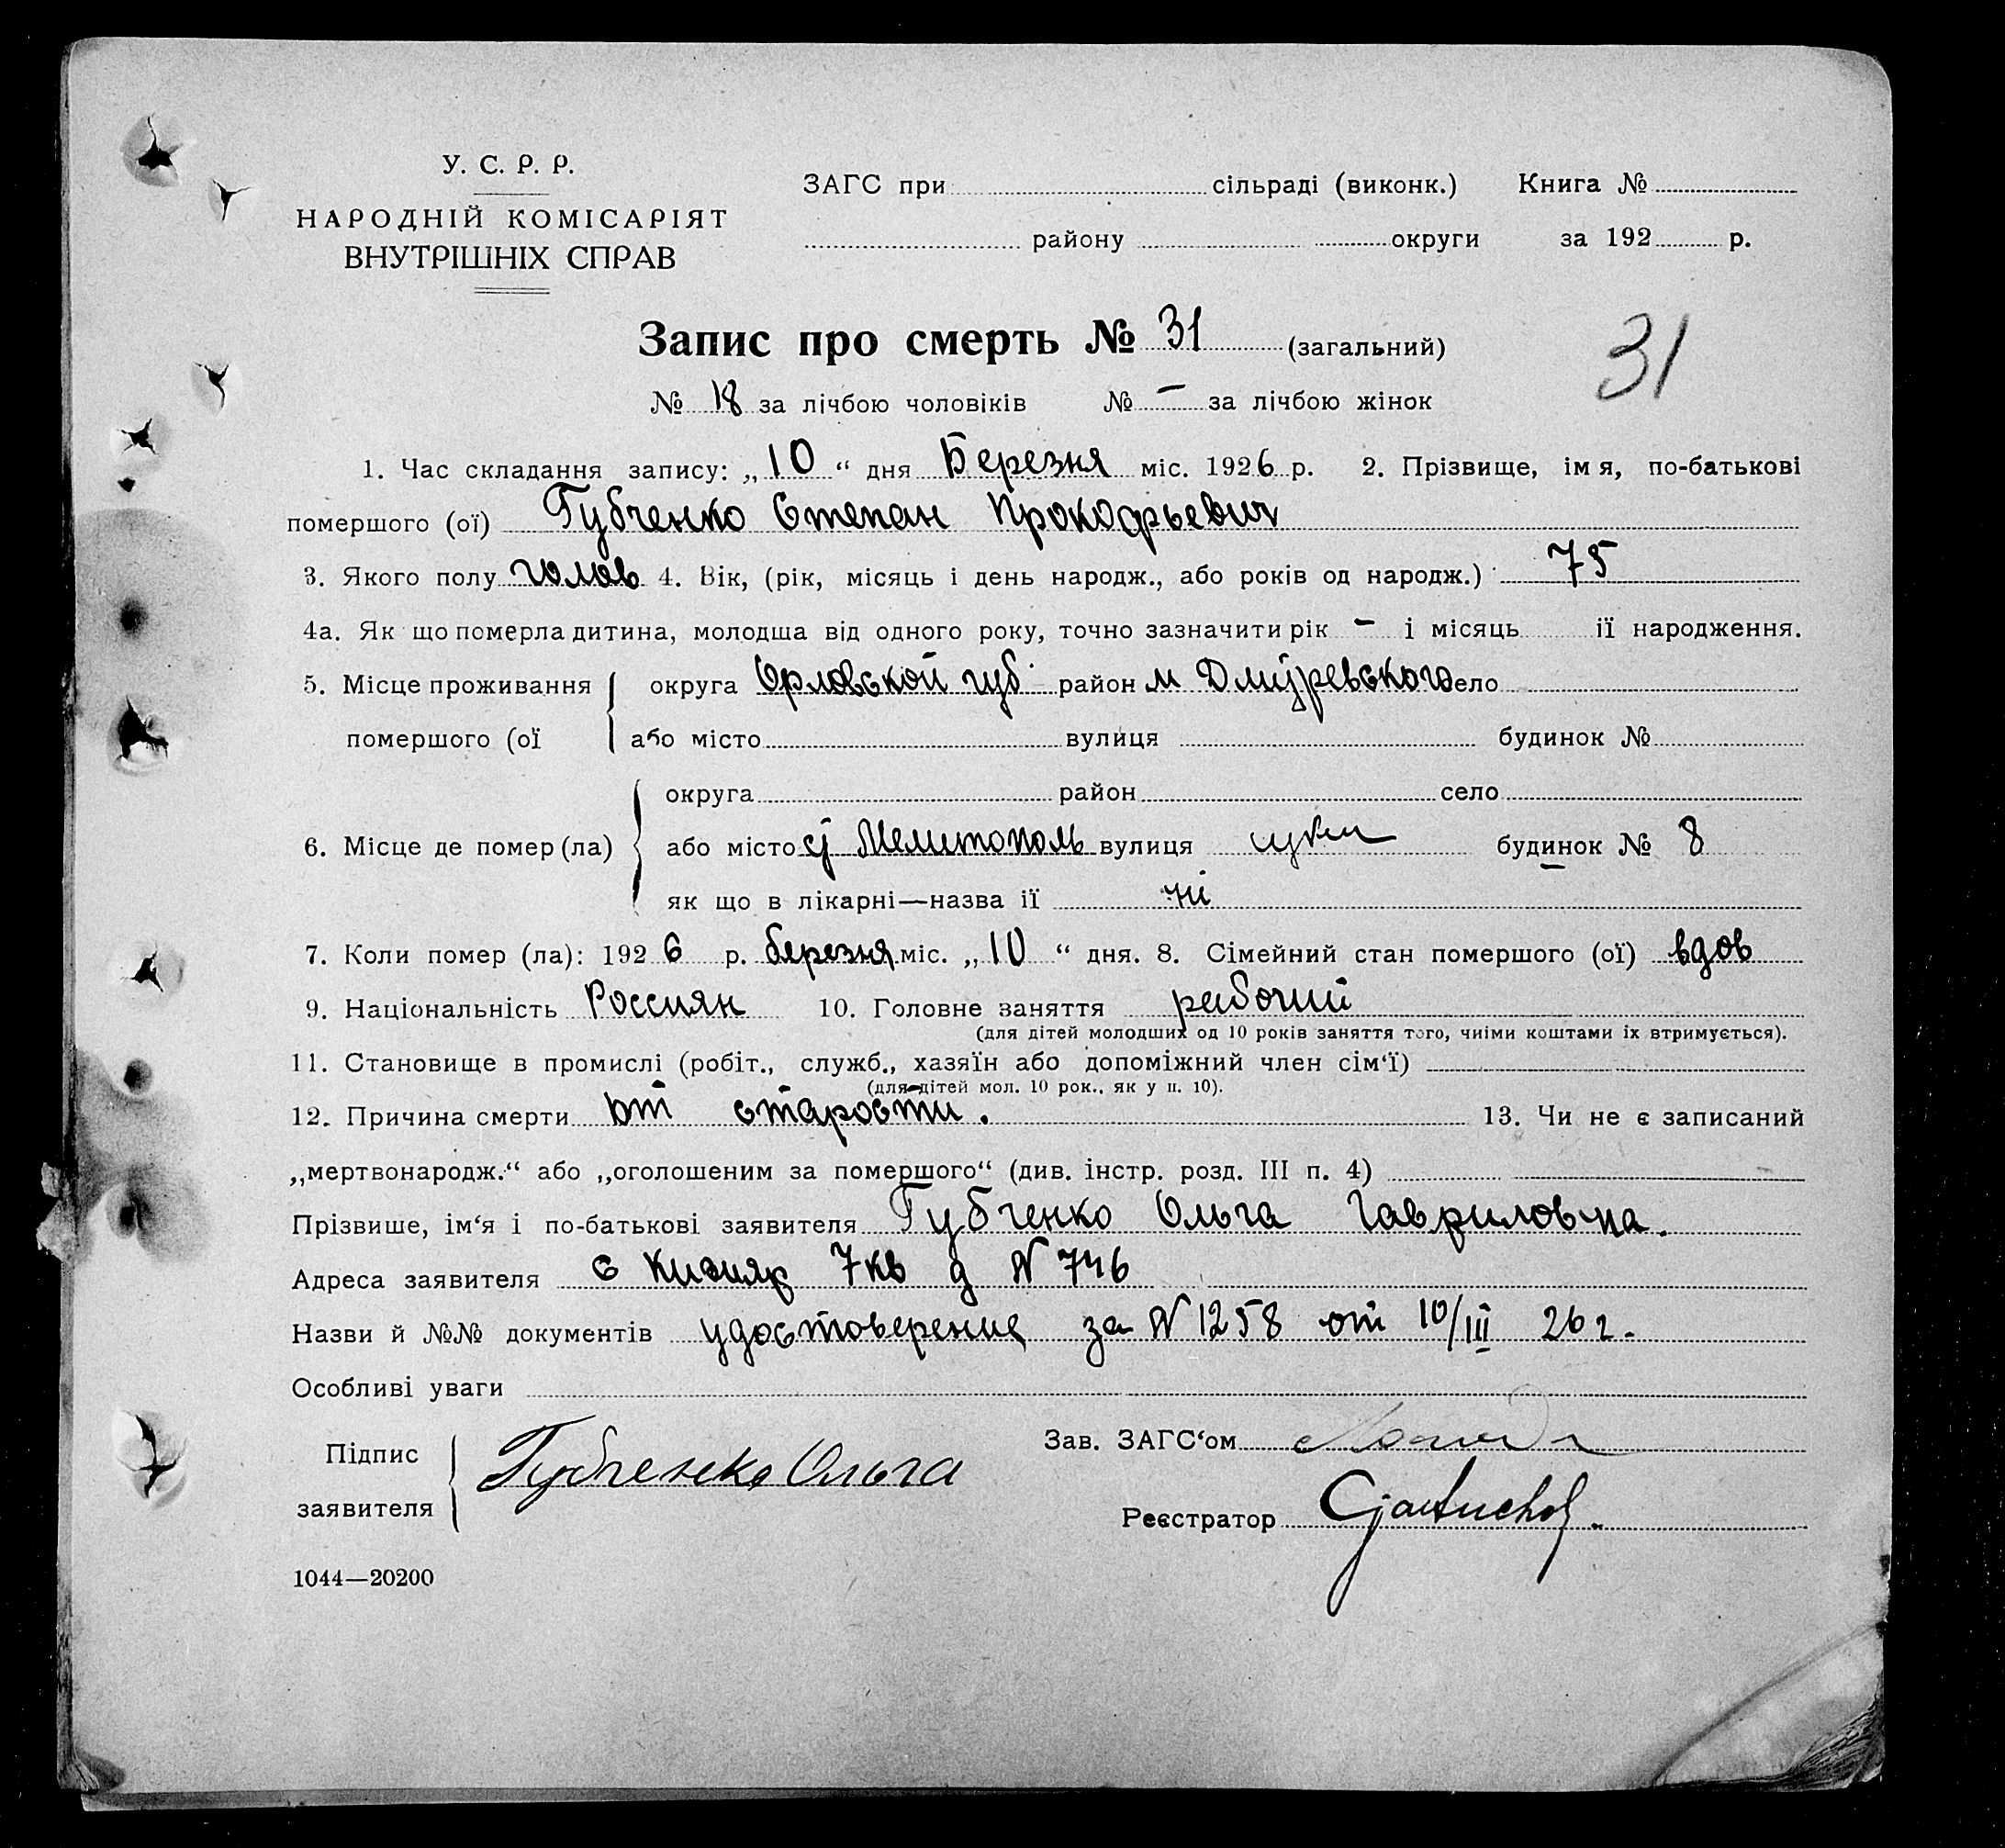 У. С. Р. Р.
НАРОДНІЙ КОМІСАРІЯТ
ВНУТРІШНІХ СПРАВ
ЗАГС при сільраді (виконк.) Книга №
району округи за 192 р.
Запис про смерть № 31 (загальний)
31
№ 18 за лічбою чоловіків № – за лічбою жінок
1. Час складання запису: „10“ дня Березня міс. 1926 р. 2. Прізвище, імя, по-батькові
помершого (ої) Губченко Степан Прокофьевич
3. Якого полу чолов 4. Вік, (рік, місяць і день народж., або років од народж.) 75
4а. Як що померла дитина, молодша від одного року, точно зазначити рік – і місяць ії народження.
5. Місце проживання округа Орловской губ район м село
помершого (ої або місто вулиця будинок №
округа район село
6. Місце де помер (ла) або місто Мелитополь вулиця будинок № 8
як що в лікарні—назва ії ні
7. Коли помер (ла): 1926 р. березня міс. „10“ дня. 8. Сімейний стан помершого (ої) вдов
9. Національність Россиян 10. Головне заняття рабочий
(для дітей молодших од 10 років заняття того, чиїми коштами їх втримується).
11. Становище в промислі (робіт., служб., хазяїн або допоміжний член сім‘ї)
(для дітей мол. 10 рок., як у п. 10).
12. Причина смерти от старости. 13. Чи не є записаний
„мертвонародж.“ або „оголошеним за помершого“ (див. інстр. розд. III п. 4)
Прізвише, ім‘я і по-батькові заявителя Губченко Ольга Гавриловна.
Адреса заявителя с Кизияр 7кв д № 746
Назви й №№ документів удостоверение за № 1258 от 10/III 26 г.
Особливі уваги
Підпис
заявителя Губченко Ольга
Зав. ЗАГС‘ом
Реєстратор
1044—20200